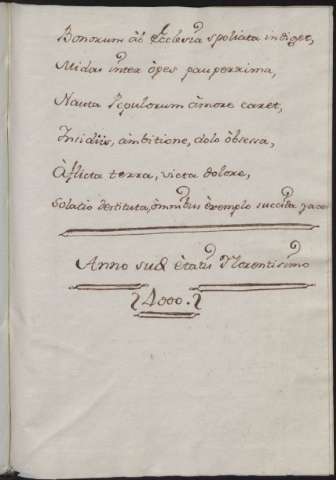 Bonorum ab Ecclesia spoliata indiget,
Midas inter ópes pauperrima,
Nauta Populorum ámore caret,
Insidiis, ámbitione, dolo óbsessa,
Aflicta terra, victa dolore,
Solatio destituta, ómnibus éxemplo succida
Anno suæ ætatis Florentisimo
4000.